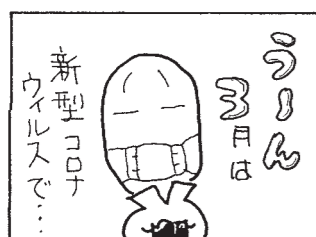 うーん
3月は
新型コロナ
ウィルスで・・・